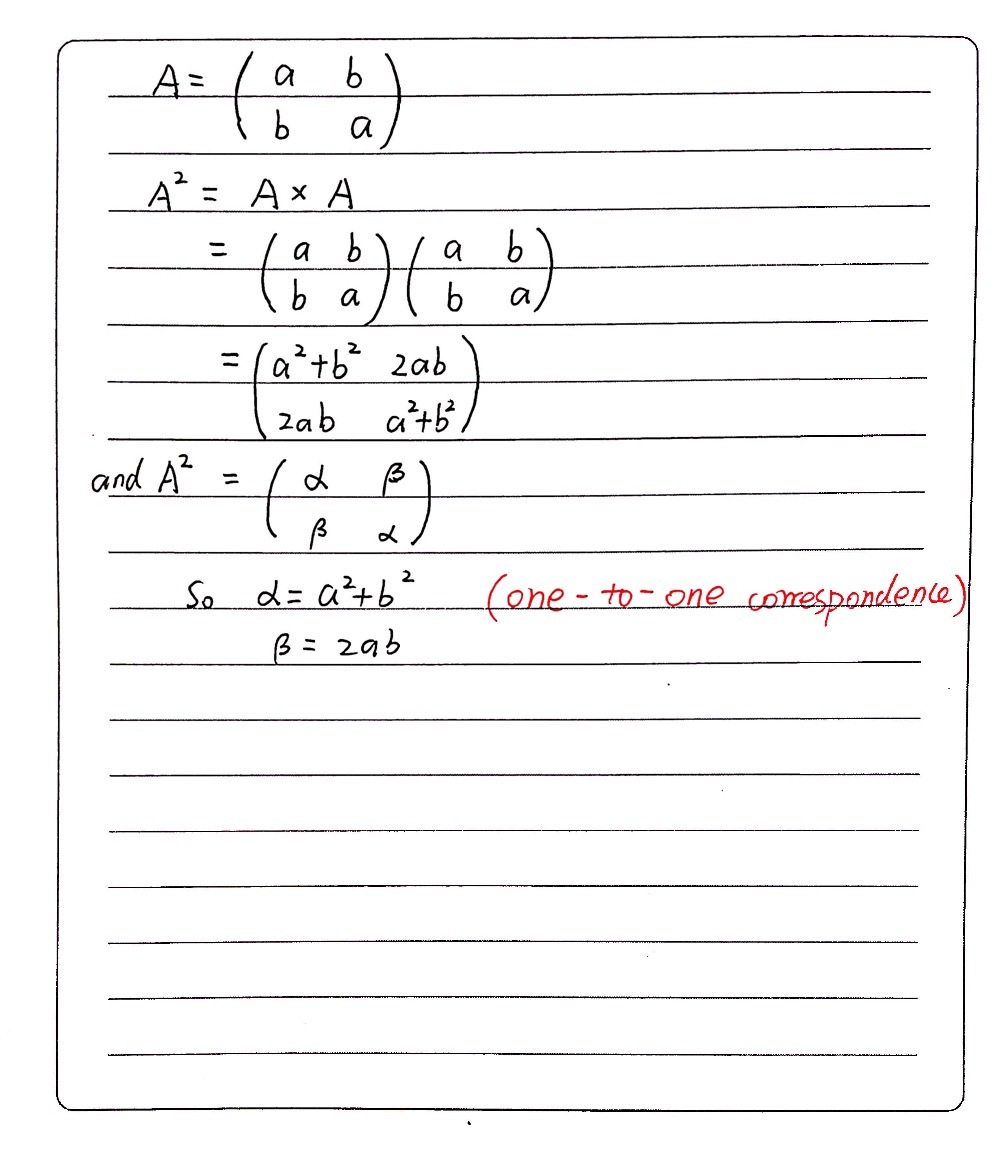 A = ( a b
b a )
A² = A × A
= ( a b
b a ) ( a b
b a )
= ( a²+b² 2ab
2ab a²+b² )
and A² = ( α β
β α )
So α = a²+b² (one-to-one correspondence)
β = 2ab